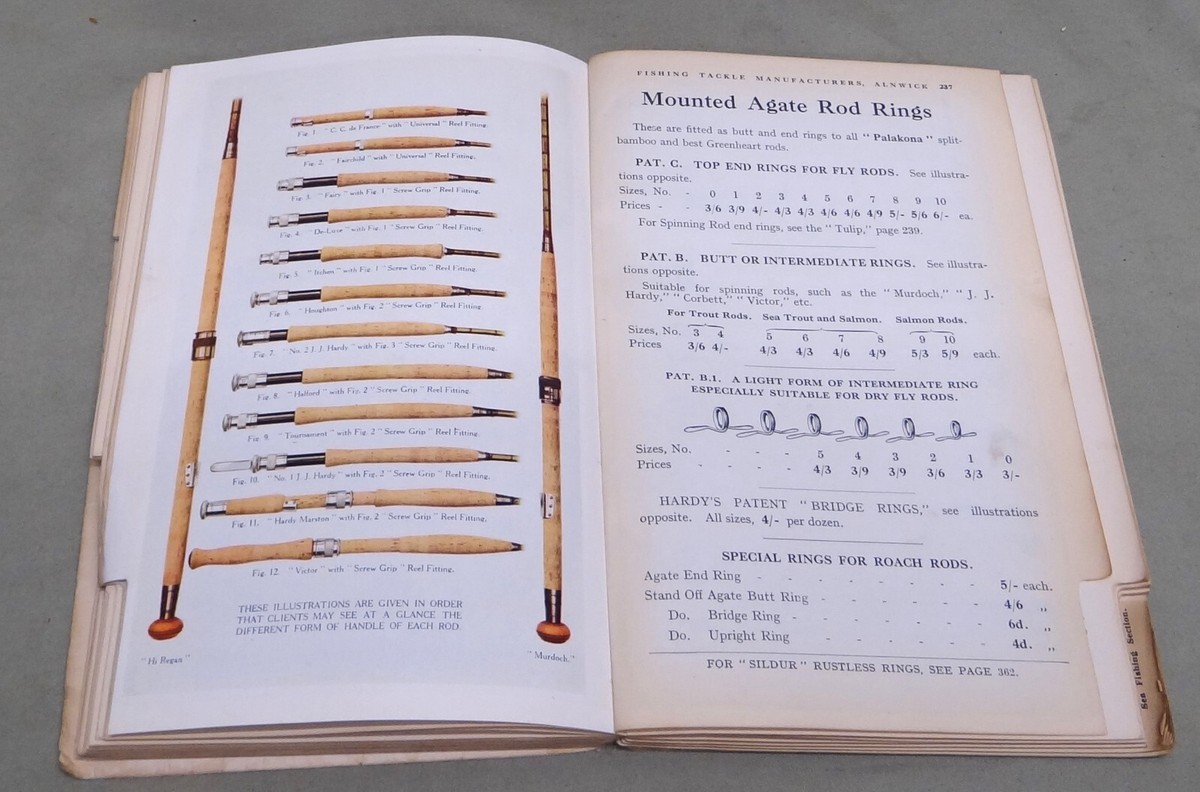 Fig. 1. "C. C. de France" with "Universal" Reel Fitting.
Fig. 2. "Fairchild" with "Universal" Reel Fitting.
Fig. 3. "Fairy" with Fig. 1 "Screw Grip" Reel Fitting.
Fig. 4. "De-Luxe" with Fig. 1 "Screw Grip" Reel Fitting.
Fig. 5. "Itchen" with Fig. 1 "Screw Grip" Reel Fitting.
Fig. 6. "Houghton" with Fig. 2 "Screw Grip" Reel Fitting.
Fig. 7. "No. 2 J. J. Hardy" with Fig. 3 "Screw Grip" Reel Fitting.
Fig. 8. "Halford" with Fig. 2 "Screw Grip" Reel Fitting.
Fig. 9. "Tournament" with Fig. 2 "Screw Grip" Reel Fitting.
Fig. 10. "No. 1 J. J. Hardy" with Fig. 2 "Screw Grip" Reel Fitting.
Fig. 11. "Hardy Marston" with Fig. 2 "Screw Grip" Reel Fitting.
Fig. 12. "Victor" with "Screw Grip" Reel Fitting.
THESE ILLUSTRATIONS ARE GIVEN IN ORDER
THAT CLIENTS MAY SEE AT A GLANCE THE
DIFFERENT FORM OF HANDLE OF EACH ROD.
"Hi Regan"
"Murdoch."
FISHING TACKLE MANUFACTURERS, ALNWICK 237
Mounted Agate Rod Rings
These are fitted as butt and end rings to all "Palakona" split-
bamboo and best Greenheart rods.
PAT. C. TOP END RINGS FOR FLY RODS. See illustra-
tions opposite.
Sizes, No. - 0 1 2 3 4 5 6 7 8 9 10
Prices - - 3/6 3/9 4/- 4/3 4/3 4/6 4/6 4/9 5/- 5/6 6/- ea.
For Spinning Rod end rings, see the "Tulip," page 239.
PAT. B. BUTT OR INTERMEDIATE RINGS. See illustra-
tions opposite.
Suitable for spinning rods, such as the "Murdoch," "J. J.
Hardy," "Corbett," "Victor," etc.
For Trout Rods. Sea Trout and Salmon. Salmon Rods.
Sizes, No. 3 4 5 6 7 8 9 10
Prices 3/6 4/- 4/3 4/3 4/6 4/9 5/3 5/9 each.
PAT. B.1. A LIGHT FORM OF INTERMEDIATE RING
ESPECIALLY SUITABLE FOR DRY FLY RODS.
Sizes, No. - - - 5 4 3 2 1 0
Prices - - - - 4/3 3/9 3/9 3/6 3/3 3/-
HARDY'S PATENT "BRIDGE RINGS," see illustrations
opposite. All sizes, 4/- per dozen.
SPECIAL RINGS FOR ROACH RODS.
Agate End Ring - - - - - - - 5/- each.
Stand Off Agate Butt Ring - - - - - - 4/6 „
Do. Bridge Ring - - - - - - - 6d. „
Do. Upright Ring - - - - - - 4d. „
FOR "SILDUR" RUSTLESS RINGS, SEE PAGE 362.
Sea Fishing Section.